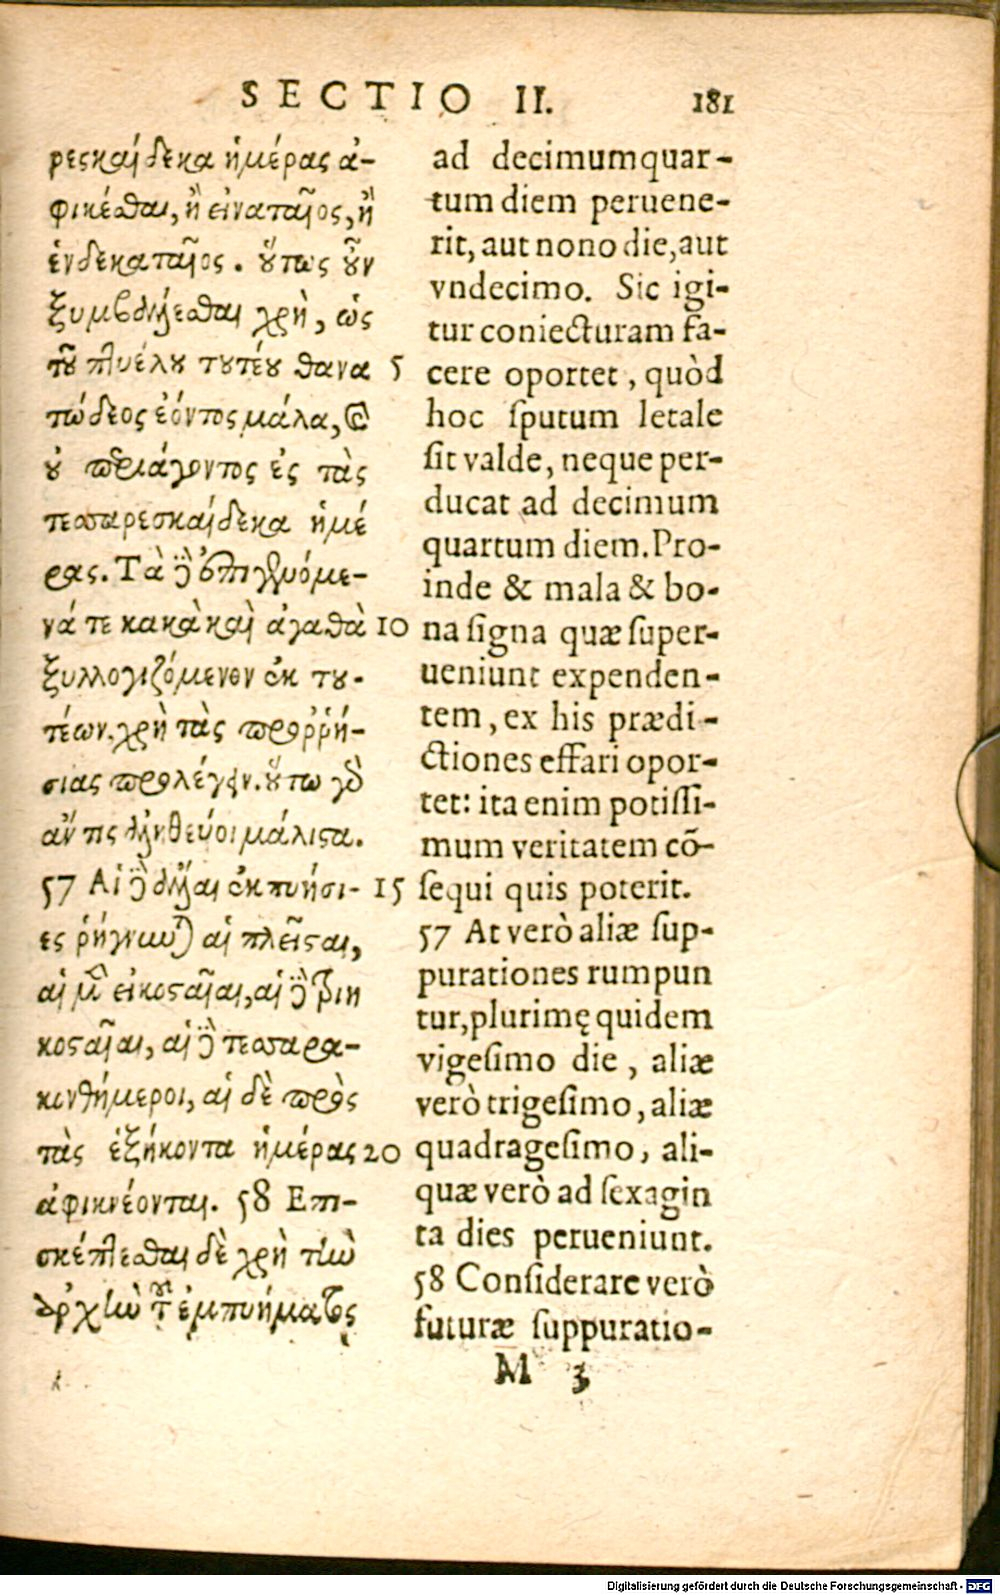 SECTIO II. 181
ρεσκαίδεκα ἡμέρας ἀ-
φικέσθαι, ἢ εἰναταῖος, ἢ
ἑνδεκαταῖος. οὕτως οὖν
ξυμβάλλεσθαι χρὴ, ὡς
τοῦ πτυέλου τουτέου θανα 5
τώδεος ἐόντος μάλα, καὶ
οὐ περιάγοντος ἐς τὰς
τεσσαρεσκαίδεκα ἡμέ
ρας. Τὰ δὲ ἐπιγινόμε-
νά τε κακὰ καὶ ἀγαθὰ 10
ξυλλογιζόμενον ἐκ του-
τέων. χρὴ τὰς προῤῥή-
σιας προλέγειν. οὕτω γὰρ
ἄν τις ἀληθεύοι μάλιστα.
57 Αἱ δὲ ἄλλαι ἐκπυήσι- 15
ες ῥήγνυνται αἱ πλεῖσται,
αἱ μὲν εἰκοσταῖαι, αἱ δὲ τριη
κοσταῖαι, αἱ δὲ τεσσαρα-
κονθήμεροι, αἱ δὲ πρὸς
τὰς ἑξήκοντα ἡμέρας 20
ἀφικνέονται. 58 Επι-
σκέπτεσθαι δὲ χρὴ τὴν
ἀρχὴν τοῦ ἐμπυήματος
ad decimumquar-
tum diem peruene-
rit, aut nono die, aut
vndecimo. Sic igi-
tur coniecturam fa-
cere oportet, quòd
hoc sputum letale
sit valde, neque per-
ducat ad decimum
quartum diem. Pro-
inde & mala & bo-
na signa quæ super-
ueniunt expenden-
tem, ex his prædi-
ctiones effari opor-
tet: ita enim potissi-
mum veritatem cō-
sequi quis poterit.
57 At verò aliæ sup-
purationes rumpun
tur, plurimę quidem
vigesimo die, aliæ
verò trigesimo, aliæ
quadragesimo, ali-
quæ verò ad sexagin
ta dies perueniunt.
58 Considerare verò
futuræ suppuratio-
M 3
Digitalisierung gefördert durch die Deutsche Forschungsgemeinschaft - DFG